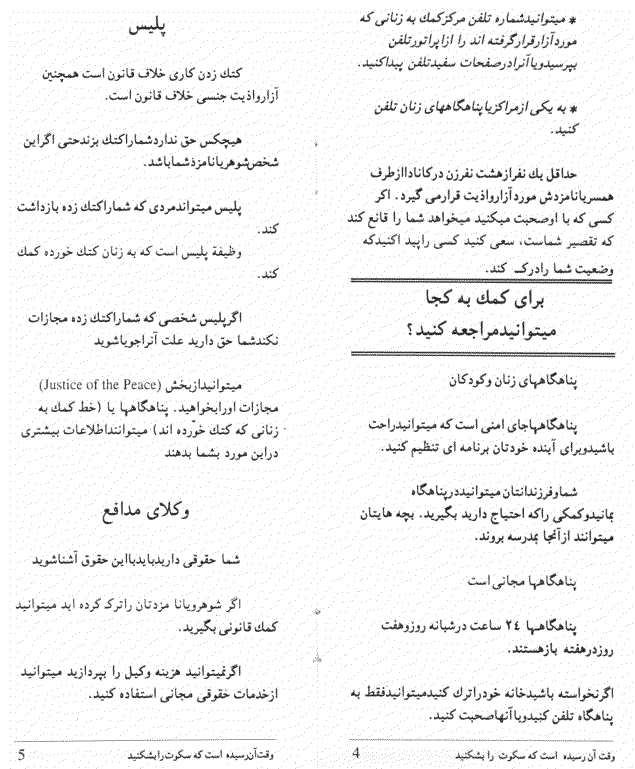 * میتوانیدشماره تلفن مرکزکمك به زنانی که
موردآزارقرارگرفته اند را ازاپراتورتلفن
بپرسیدویاآنرادرصفحات سفیدتلفن پیداکنید.
* به یکی ازمراکزیاپناهگاههای زنان تلفن
کنید.
حداقل یك نفرازهشت نفرزن درکاناداازطرف
همسریانامزدش موردآزارواذیت قرارمی گیرد. اکر
کسی که با اوصحبت میکنید میخواهد شما را قانع کند
که تقصیر شماست، سعی کنید کسی راپید اکنیدکه
وضعیت شما رادرک کند.
برای کمك به کجا
میتوانیدمراجعه کنید؟
پناهگاههای زنان وکودکان
پناهگاههاجای امنی است که میتوانیدراحت
باشیدوبرای آینده خودتان برنامه ای تنظیم کنید.
شماوفرزندانتان میتوانیددرپناهگاه
بمانیدوکمکی راکه احتیاج دارید بگیرید. بچه هایتان
میتوانند ازآنجا بمدرسه بروند.
پناهگاهها مجانی است
پناهگاهها ٢٤ ساعت درشبانه روزوهفت
روزدرهفته بازهستند.
اگرنخواسته باشیدخانه خودراترك کنیدمیتوانیدفقط به
پناهگاه تلفن کنیدوباآنهاصحبت کنید.
وقت آن رسیده است که سکوت را بشکنید 4
پلیس
کتك زدن کاری خلاف قانون است همچنین
آزارواذیت جنسی خلاف قانون است.
هیچکس حق نداردشماراکتك بزندحتی اگراین
شخص‌شوهریانامزدشماباشد.
پلیس میتواندمردی که شماراکتك زده بازداشت
کند.
وظیفة پلیس است که به زنان کتك خورده کمك
کند.
اگرپلیس شخصی که شماراکتك زده مجازات
نکندشما حق دارید علت آنراجویاشوید
میتوانیدازبخش (Justice of the Peace)
مجازات اورابخواهید. پناهگاهها یا (خط کمك به
زنانی که کتك خورده اند) میتوانندأطلاعات بیشتری
دراین مورد بشما بدهند
وکلای مدافع
شما حقوقی داریدبایدبااین حقوق آشناشوید
اگر شوهرویانا مزدتان راترک کرده اید میتوانید
کمك قانونی بگیرید.
اگرنمیتوانید هزینه وکیل را بپردازید میتوانید
ازخدمات خقوقی مجانی استفاده کنید.
وقت‌آن‌رسیده است که سکوت‌رابشکنید 5